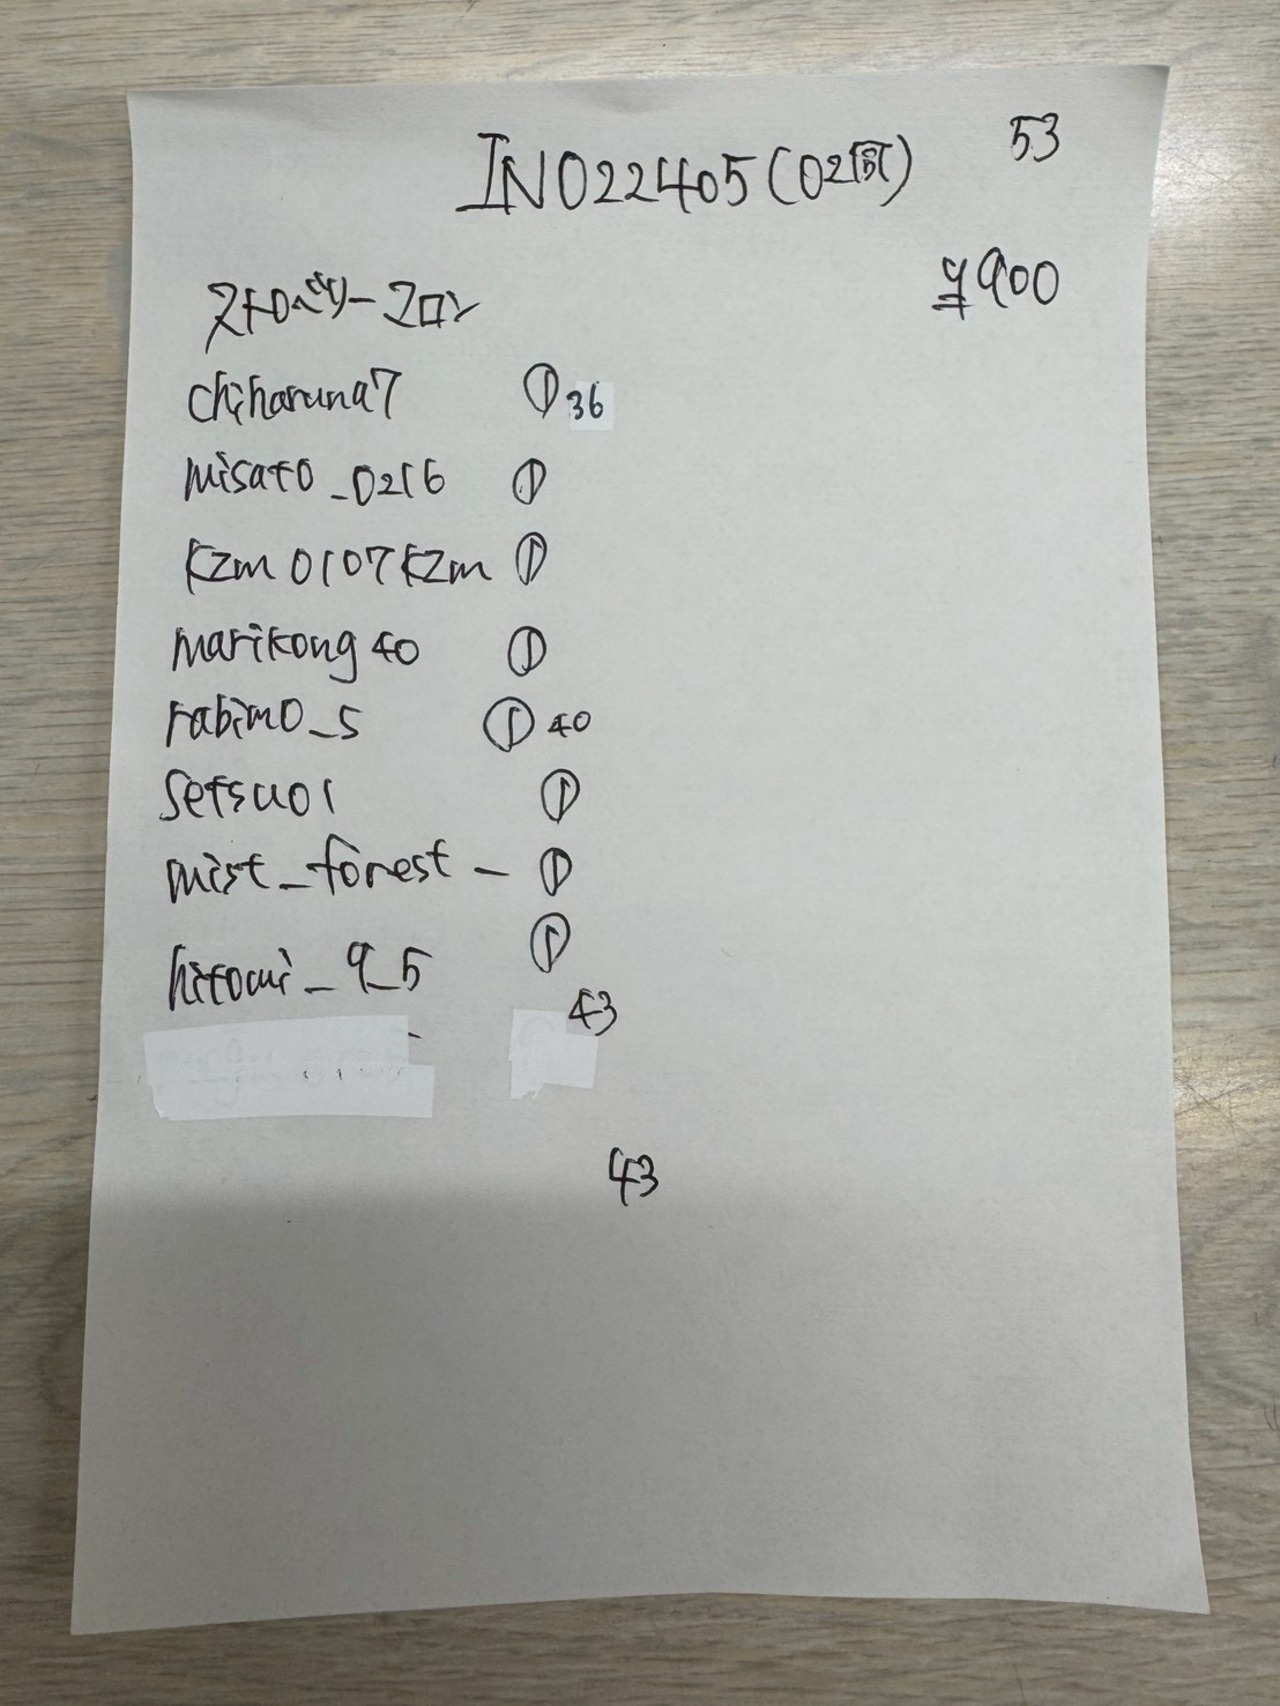 53
IN022405(02颗)
¥900
ストロベリーマロン
chiharuna7 ① 36
misato_0216 ①
kzm0107kzm ①
marikong40 ①
rabimo_5 ① 40
setsu01 ①
mist_forest_ ①
hitomi_9_5 ①
43
43